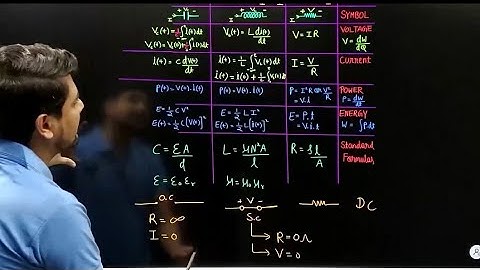 + V - + V - + V - SYMBOL
I I I
Vc(t) = 1/C ∫i(t)dt VL(t) = L di(t)/dt V = IR VOLTAGE V = dW/dQ
Vc(t) = Vc(0) + 1/C ∫i(t)dt
i(t) = C dv(t)/dt i(t) = 1/L ∫V(t)dt I = V/R Current
i(t) = iL(0) + 1/L ∫V(t)dt
P(t) = V(t).i(t) P(t) = V(t).i(t) P = I²R or V²/R = V.I POWER P = dW/dt
E = 1/2 CV² E = 1/2 L I² E = P.t = V.I.t ENERGY W = ∫P.dt
E(t) = 1/2 C[V(t)]² E(t) = 1/2 L[i(t)]²
C = εA/d L = μN²A/l R = ρl/A Standard Formulas
ε = ε₀ εᵣ μ = μ₀ μᵣ
O.C + V - DC
R = ∞ S.C
I = 0 R = 0Ω
V = 0